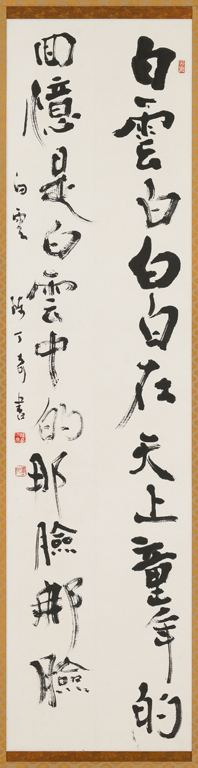 白雲白白白在天上童年的
回憶是白雲中的那臉那臉
白雲 陳丁奇書